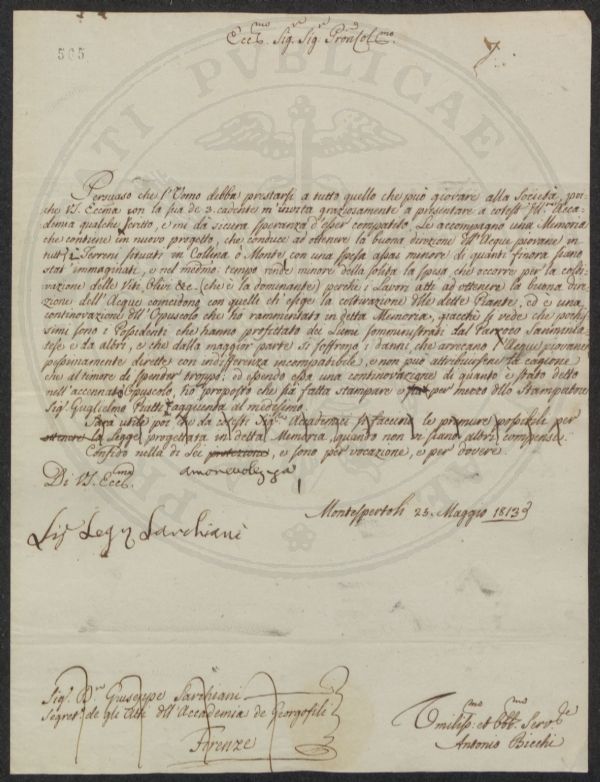 Ecc.mo Sig.re Sig.re Pron Col.mo
7
565
Persuaso che l'Uomo debba prestarsi a tutto quello che può giovare alla Società, poi-
che VS. Ecc.ma con la sua de 3. cadente m'invita graziosamente a presentare a cotest' Ill.re Acca-
demia qualche scritto, e mi dà sicura speranza d'esser compatito. Le accompagno una Memoria
che contiene un nuovo progetto, che conduce ad ottenere la buona direzione dell'Acque piovane in
tutti i Terreni situati in Collina, o Monte, con una spesa assai minore di quanti finora siano
stati immaginati, e nel medmo tempo rende minore della solita la spesa che occorre per la colti-
vazione delle Viti, Olivi &c. (che è la dominante) perchè i Lavori atti ad ottenere la buona dire-
zione dell'Acque coincidono con quelli ch'esige la coltivazione delle dette Piante, ed è una
continovazione dell'Opuscolo che ho rammentato in detta Memoria, giacchè si vede che pochis-
simi sono i Possidenti che hanno profittato dei Lumi somministrati dal Parroco Samminia-
tese e da altri, e che dalla maggior parte si soffrono i danni che arrecano l'Acque piovane
pessimamente dirette con indifferenza incompatibile, e non può attribuirsene la cagione
che al timore di spender troppo; ed essendo essa una continovazione di quanto è stato detto
nell'accennato Opuscolo, ho proposto che sia fatta stampare e per mezzo dello Stampatore
Sig.r Guglielmo Piatti l'aggiunta al medesimo.
Sarà utile poi che da cotesti Sig.ri Accademici si faccino le premure possibili per
ottenere la Legge progettata in detta Memoria, quando non vi siano altri compensi.
Confido nella di Lei protezione, e sono per vocazione, e per dovere.
amorevolezza
Di VS. Ecc.ma
Montespertoli 25. Maggio 1813
Sig Seg Sarchiani
Sig.r D.re Giuseppe Sarchiani
Segret.o de gli Atti dell'Accademia de Georgofili
Firenze
Umiliss.mo et Obb.mo Serv.re
Antonio Bicchi